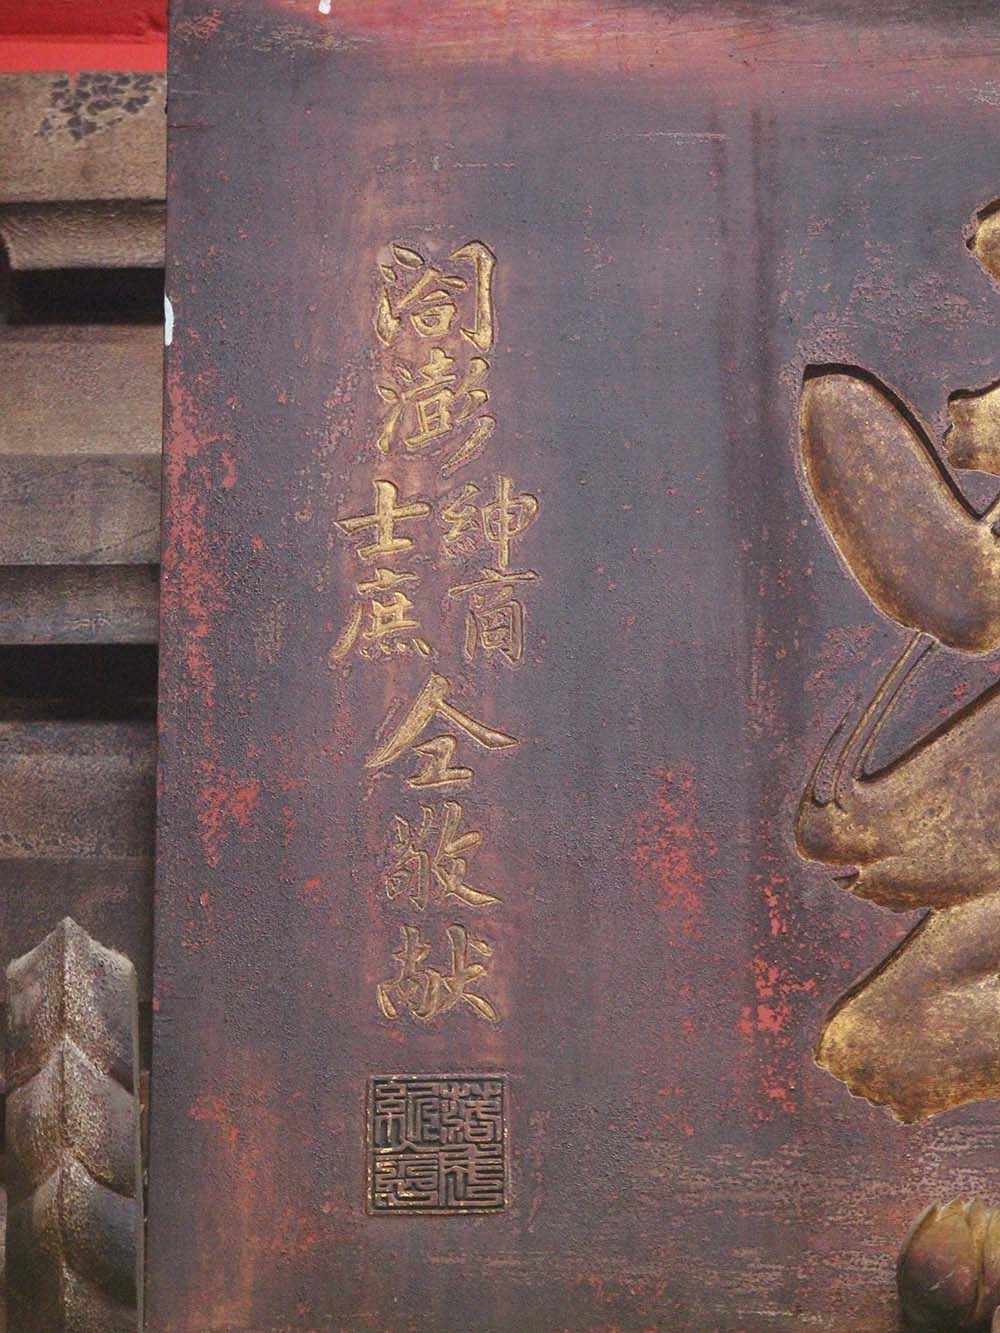 闔澎
紳商
士庶
仝敬献